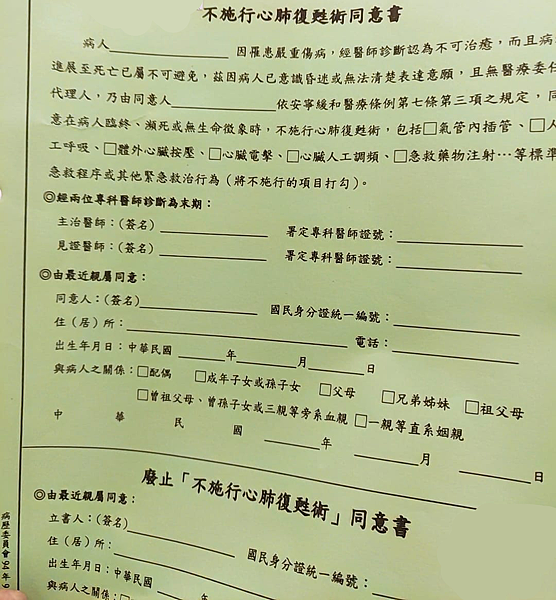 不施行心肺復甦術同意書
病人　　　　　　因罹患嚴重傷病，經醫師診斷認為不可治癒，而且病
進展至死亡已屬不可避免，茲因病人已意識昏迷或無法清楚表達意願，且無醫療委任
代理人，乃由同意人　　　　　　依安寧緩和醫療條例第七條第三項之規定，同
意在病人臨終、瀕死或無生命徵象時，不施行心肺復甦術，包括□氣管內插管、□人
工呼吸、□體外心臟按壓、□心臟電擊、□心臟人工調頻、□急救藥物注射…等標準
急救程序或其他緊急救治行為（將不施行的項目打勾）。
◎經兩位專科醫師診斷為末期：
主治醫師：（簽名）　　　　　　署定專科醫師證號：
見證醫師：（簽名）　　　　　　署定專科醫師證號：
◎由最近親屬同意：
同意人：（簽名）　　　　　　國民身分證統一編號：
住（居）所：　　　　　　電話：
出生年月日：中華民國　　　年　　　月　　　日
與病人之關係：□配偶　□成年子女或孫子女　□父母　□兄弟姊妹　□祖父母
□曾祖父母、曾孫子女或三親等旁系血親　□一親等直系姻親
中　華　民　國　　　年　　　月　　　日
廢止「不施行心肺復甦術」同意書
◎由最近親屬同意：
立書人：（簽名）　　　　　　國民身分證統一編號：
住（居）所：
出生年月日：中華民國　　　年
與病人之關係：□
病歷委員會 94 年 9